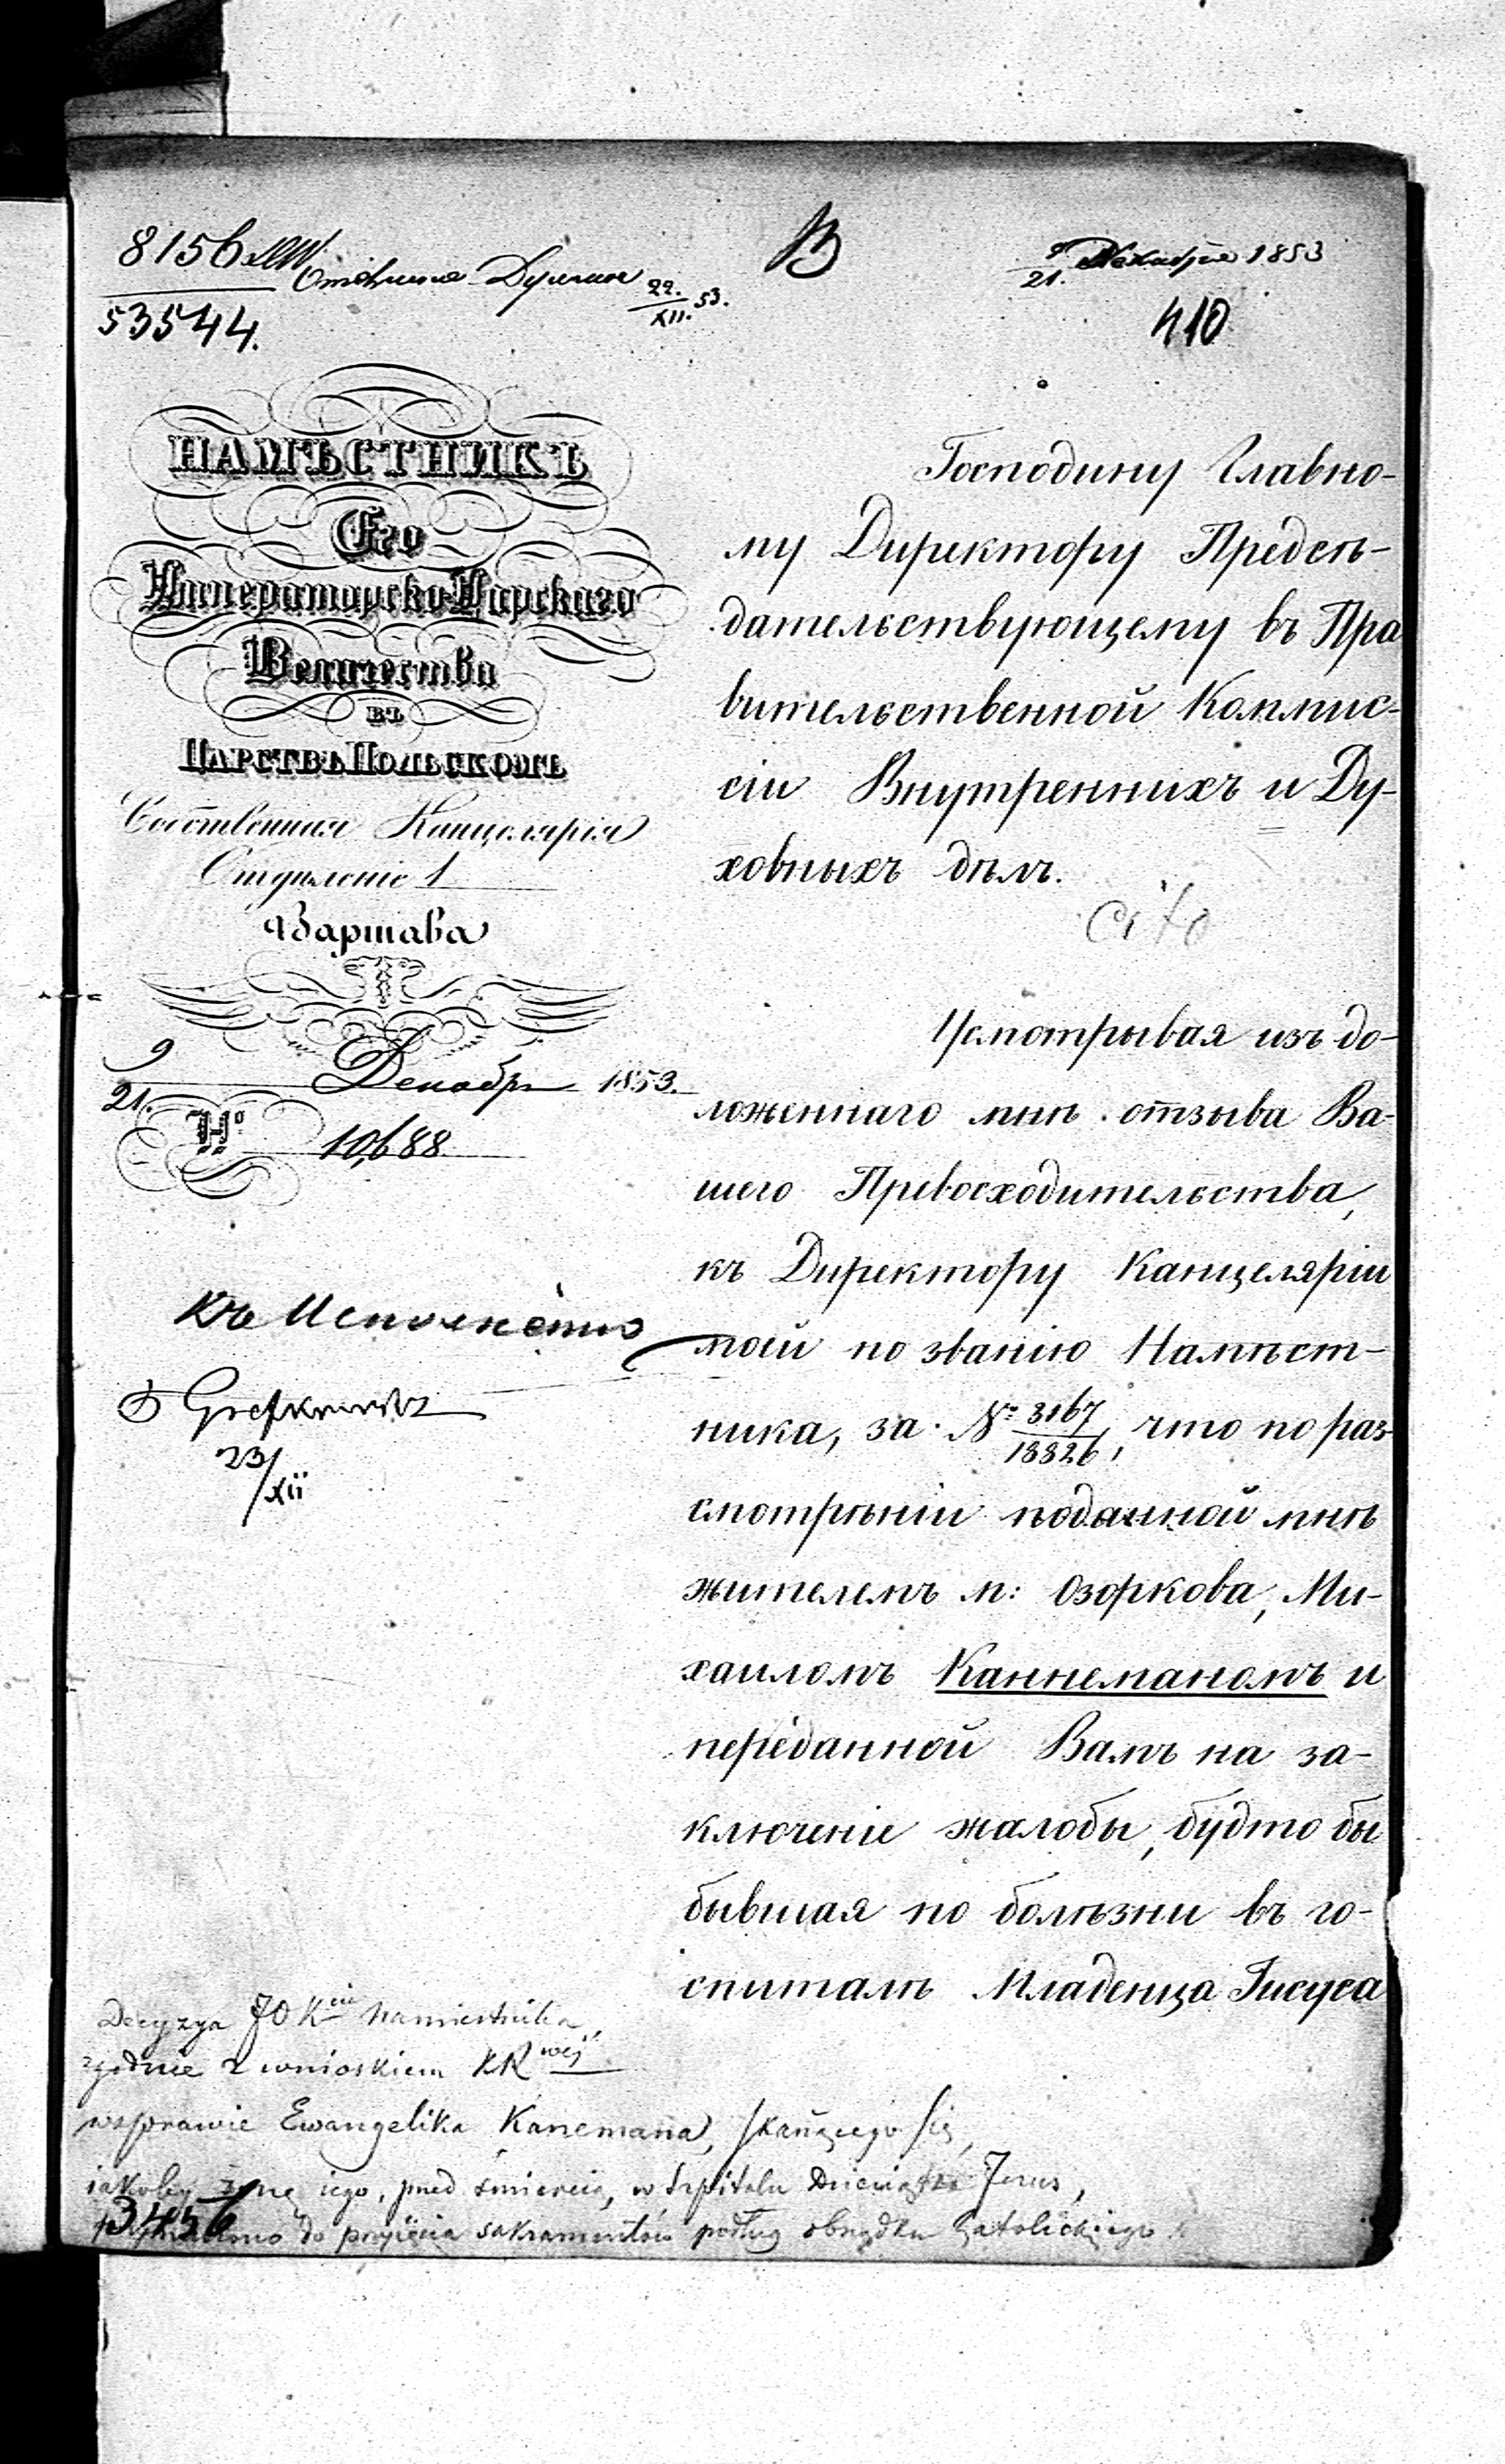 8156
53544.
22./XII. 53.
В
9/21. Декабря 1853
410
НАМѢСТНИКЪ
Его
Императорско-Царскаго
Величества
въ
ЦАРСТВѢ ПОЛЬСКОМЪ
Собственная Канцелярія
Отдѣленіе 1
Варшава
9/21. Декабря 1853.
№ 10,688
Къ Исполненію
23/XII
Господину Главно-
му Директору Предсѣ-
дательствующему въ Пра
вительственной Коммис-
сіи Внутреннихъ и Ду-
ховныхъ дѣлъ.
Cito
Усмотрывая изъ до-
ложеннаго мнѣ отзыва Ва-
шего Превосходительства,
къ Директору Канцеляріи
моей по званію Намѣст-
ника, за № 3167/18826, что по раз-
смотрѣніи поданной мнѣ
жителемъ м: Озоркова, Ми-
хаиломъ Каннеманомъ и
переданной Вамъ на за-
ключеніе жалобы, будто бы
бывшая по болѣзни въ го-
спиталѣ Младенца Іисуса
Decyzya JO Kcia Namiestnika,
zgodnie z wnioskiem KRwej
w sprawie Ewangelika Kanemana, skarżącego się,
iakoby żonę iego, przed śmiercią, w Szpitalu Dzieciątka Jezus,
do przyięcia sakramentów podług obrządku katolickiego
3456